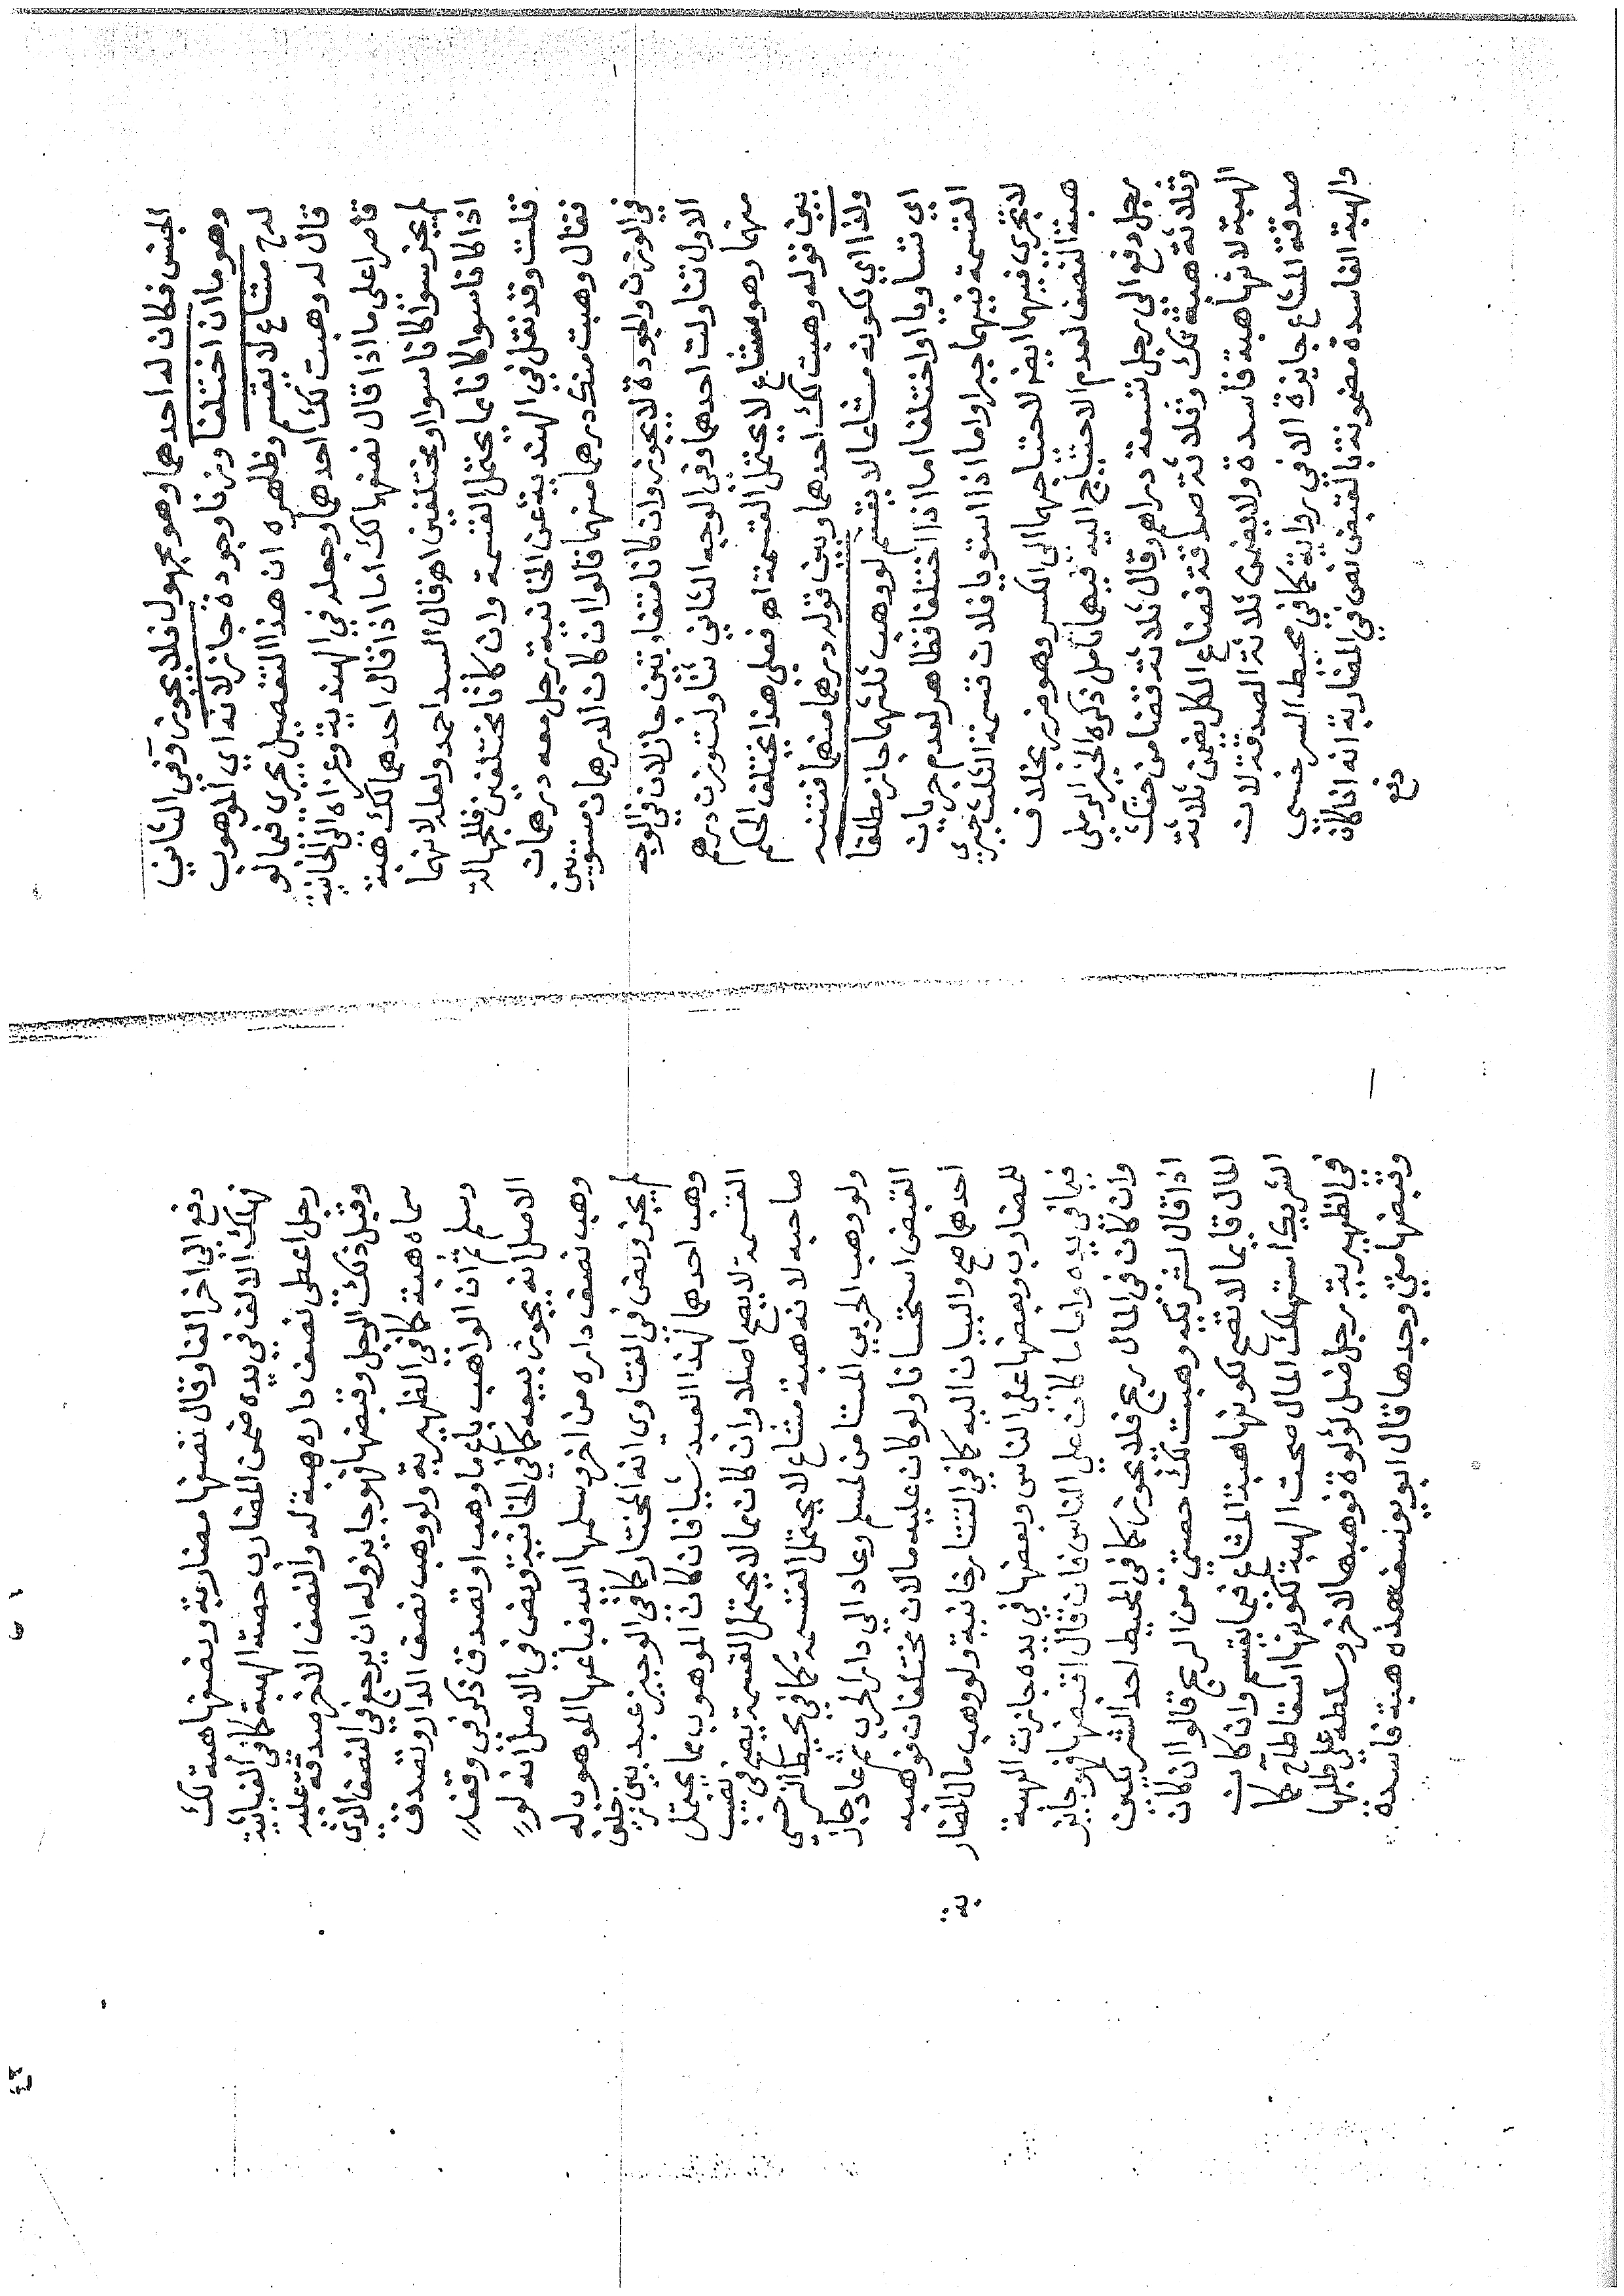 الجنس فكان له احدهما وهو مجهول فلا يجوز وفي الثاني
وهو ما ان اختلفا وزنا وجودة جاز لانه اي الموهوب
لدح مشاع لا يقسم وظاهره ان هذا التفصيل يجري فيما لو
قال له وهبت لك احدهما وجعله في الهندية وعزاه الى الخانية
قاصرا على ما اذا قال نصفهما لك اما اذا قال احدهما لك هبة
لم يجز سوا كانا سوا او مختلفين اهـ قال السيد احمد ولعله لانهما
اذا كانا سوا كانا مما يحتمل القسمة وان كانا مختلفين فللجهالة
قلت وقد نقل في الهندية عن الخانية رجل معه درهمان
فقال وهبت منك درهما منهما قالوا ان كان الدرهمان مستويين
في الوزن والجودة لا يجوز وان كانا متفاوتين جاز لان في الوجه
الاول تناولت احدهما وفي الوجه الثاني تناولت وزن درهم
منهما وهو مشاع لا يحتمل القسمة اهـ فعلى هذا يختلف الحكم
بين قوله وهبت لك احدهما وبين قوله درهما منهما فتنبه
ولذا اي لكونه مشاعا لا يقسم لو وهب ثلثهما جاز مطلقا
اي تساويا او اختلفا اما اذا اختلفا فظاهر لعدم جريان
القسمة فيهما جبرا واما اذا استويا فلان قسمة الثلث جبري
لا تجري فيهما ايضا لاحتياجهما الى الكسر وهو ضرر بخلاف
هبة النصف لعدم الاحتياج اليه فيهما تامل ذكره الخير الرملي
رجل دفع الى رجل تسعة دراهم وقال ثلاثة قضا من حقك
وثلاثة هبة لك وثلاثة صدقة فضاع الكل يضمن ثلاثة
الهبة لانها هبة فاسدة ولا يضمن ثلاثة الصدقة لان
صدقة المشاع جايزة الا في رواية كما في محيط السرخسي
والهبة الفاسدة مضمونة بالقبض نص في المضاربة انه اذا كان
دفع
دفع الى اخر الفا وقال نصفها مضاربة ونصفها هبة لك
فهلك الالف في يده ضمن المضارب حصة الهبة كما في الغياثية
رجل اعطى نصف داره هبة له والنصف الاخر صدقة عليه
وقبل ذلك الرجل وقبضها فهو جايز وله ان يرجع في النصف الذي
سماه هبة كما في الظهيرية ولو وهب نصف الدار وتصدق
وسلم ثم ان الواهب باع ما وهب او تصدق ذكر في وقف
الاصل انه يجوز بيعه كما في الخانية ونص في الاصل انه لو
وهب نصف داره من اخر وسلمها اليه فباعها الموهوب له
لم يجز ونص في الفتاوي انه المختار كما في الوجيز عبد بين رجلين
وهب احدهما لهذا العبد شيا فان كان الموهوب مما يحتمل
القسمة لا يصح اصلا وان كان مما لا يحتمل القسمة يصح في نصيب
صاحبه لانه هبة مشاع لا يحتمل القسمة كما في محيط السرخسي
ولو وهب الحربي المستامن لمسلم وعاد الى دار الحرب ثم عاد جاز
القبض استحسانا ولو كان عليه مالان مختلفان فوهبه
احدهما صح والبيان اليه كما في التتارخانية ولو وهب مال المضار
بة
للمضارب وبعضها على الناس وبعضها في يده جازت الهبة
فيما في يده واما ما كان على الناس فان قال اقبضها فهو جايز
وان كان في المال ربح فلا يجوز كما في المحيط احد الشريكين
اذا قال لشريكه وهبت لك حصتي من الربح قالوا ان كان
المال قايما لا تصح لكونها هبة المشاع فيما يقسم وان كان
الشريك استهلك المال صحت الهبة لكونها اسقاطا ح كما
في الظهيرية رجل ضل لؤلوة فوهبها لاخر وسلطه على طلبها
وقبضها متى وجدها قال ابو يوسف هذه هبة فاسدة